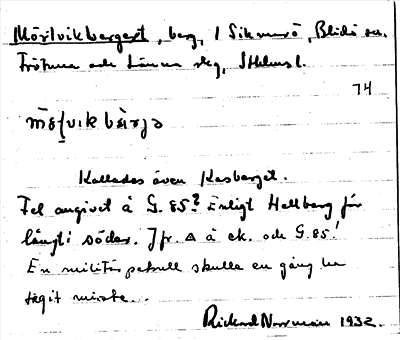 Mörtvikberget, berg, / Sikmarö, Blidö sn.
Frötuna och Länna skg, Sthlms l.
74
mö̱ʃvik bàrjə
Kallades även Kasberget.
Fel angivet å G. 85? Enligt Hellberg för
långt i söder. Jfr. △ å ek. och G. 85!
En militärpatrull skulle en gång ha
tagit miste...
Rickard Norrman 1932.